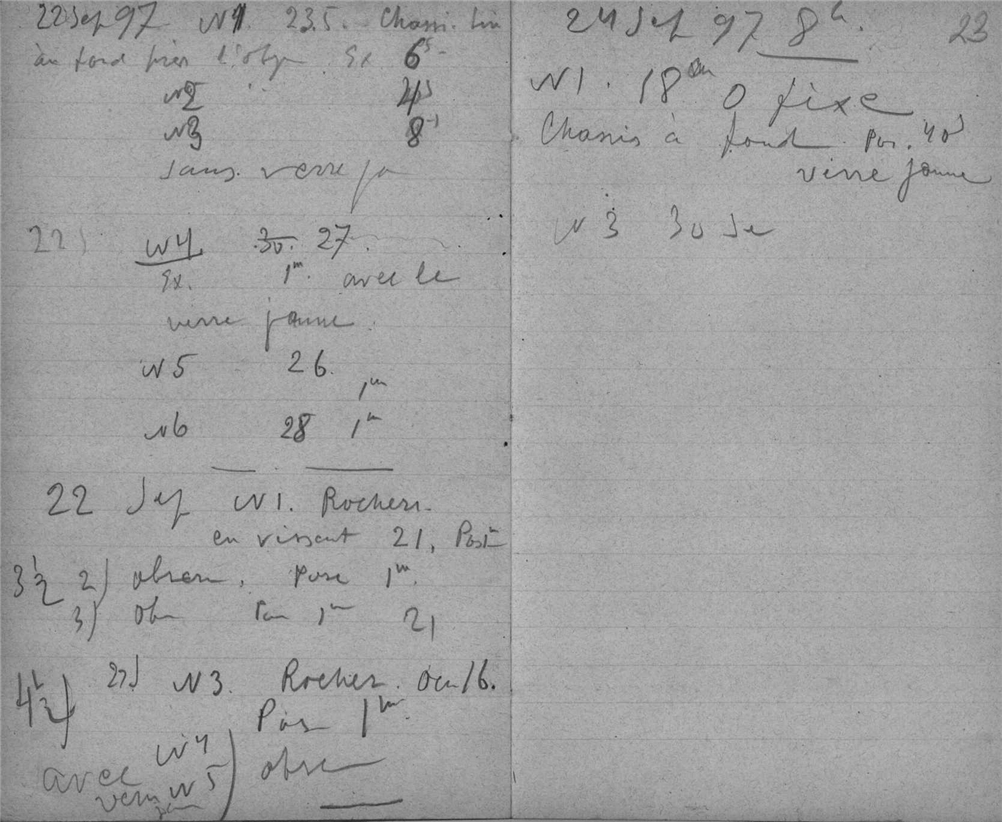 22 Sep 97 N1. 23.5. Chassis
à fond près l'obj Ex 6s
N2 " 4s
N3 8s
sans verre ja
22) N4 30. 27.
Ex. 1m. avec le
verre jaune.
N5 26.
1m
N6 28 1m
22 Sep N1. Rochers.
en vissant 21, Pos
3h½ 2) obser. Pose 1m.
3) Ob 1m 21
4h½) 22) N3. Rocher. 16.
Pos 1m.
avec N4
verre N5) obser
jaune
24 Sep 97 8h. 23
N1. 18 O fixe
Chassis à fond. Pos. 40s
verre jaune
N3 30 Se